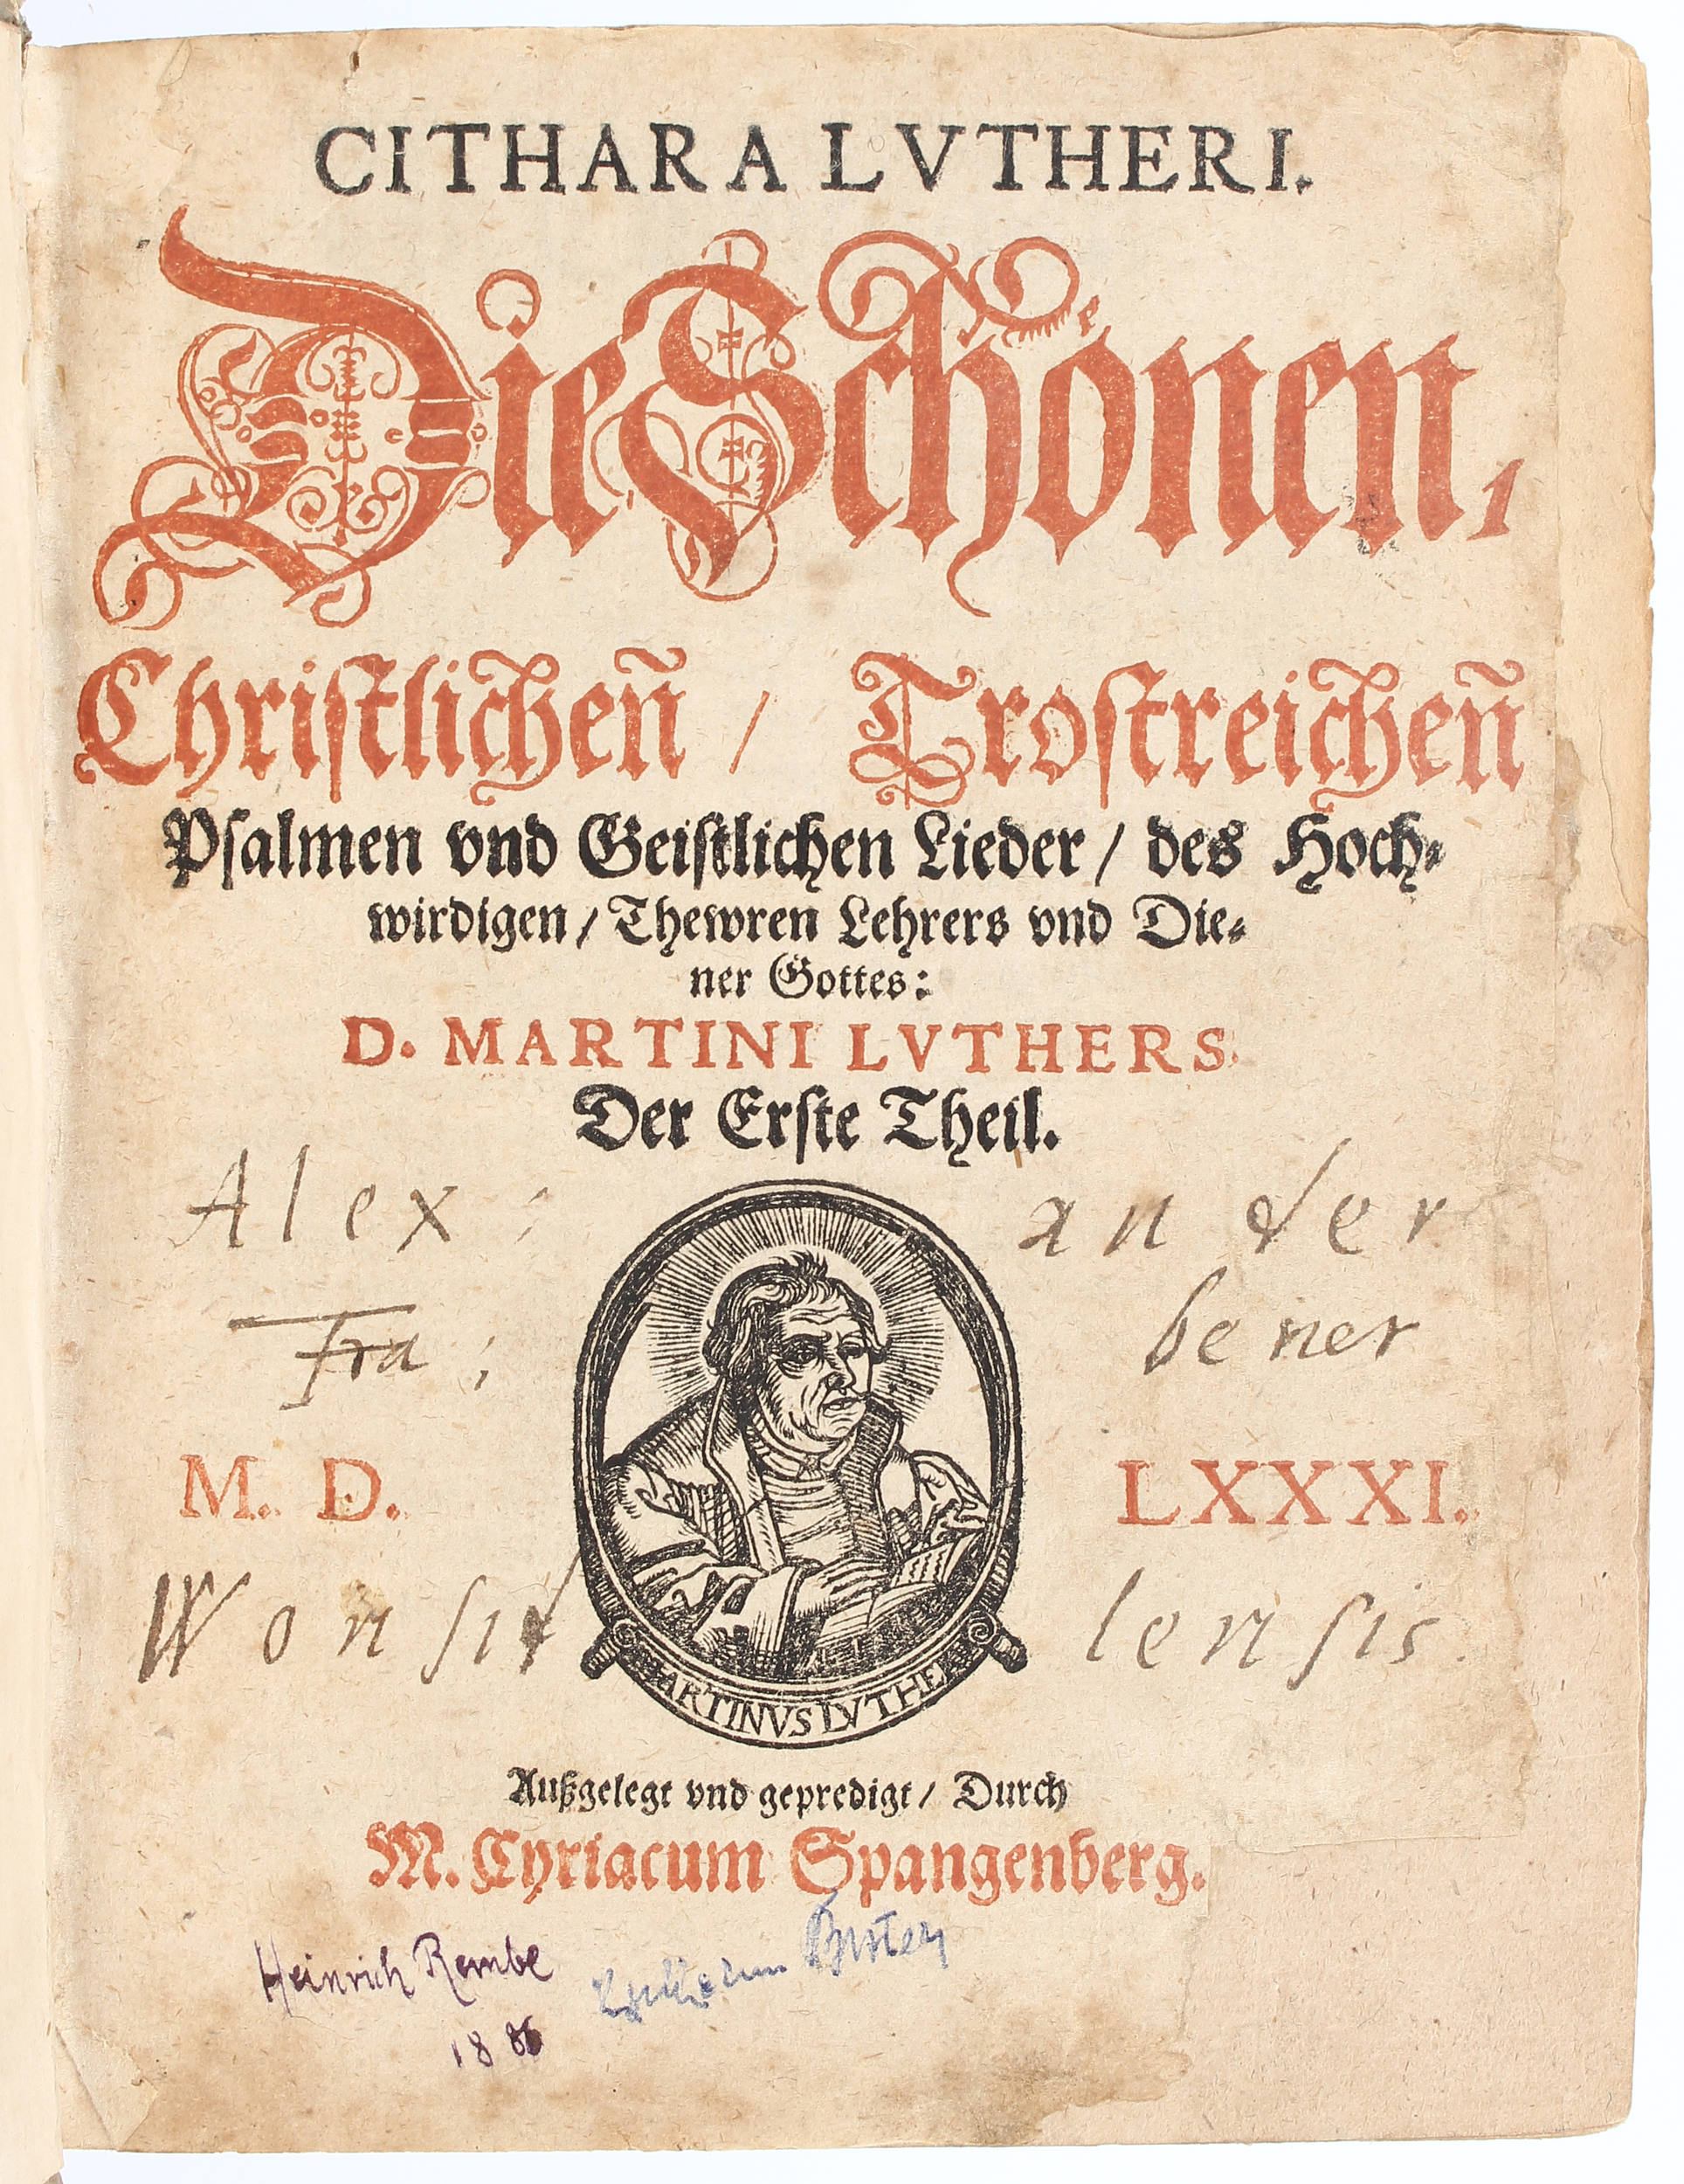 CITHARA LVTHERI.
Die Schoͤnen,
Chriſtlichen̄ / Troſtreichen̄
Pſalmen vnd Geiſtlichen Lieder / des Hoch⸗
wirdigen / Thewren Lehrers vnd Die⸗
ner Gottes:
D. MARTINI LVTHERS.
Der Erſte Theil.
Alex: ander
Fra: bener
M. D. LXXXI.
Wonſid lenſis.
MARTINVS LVTHE
Außgelegt vnd gepredigt / Durch
M. Cyriacum Spangenberg.
Heinrich Rembe
1886